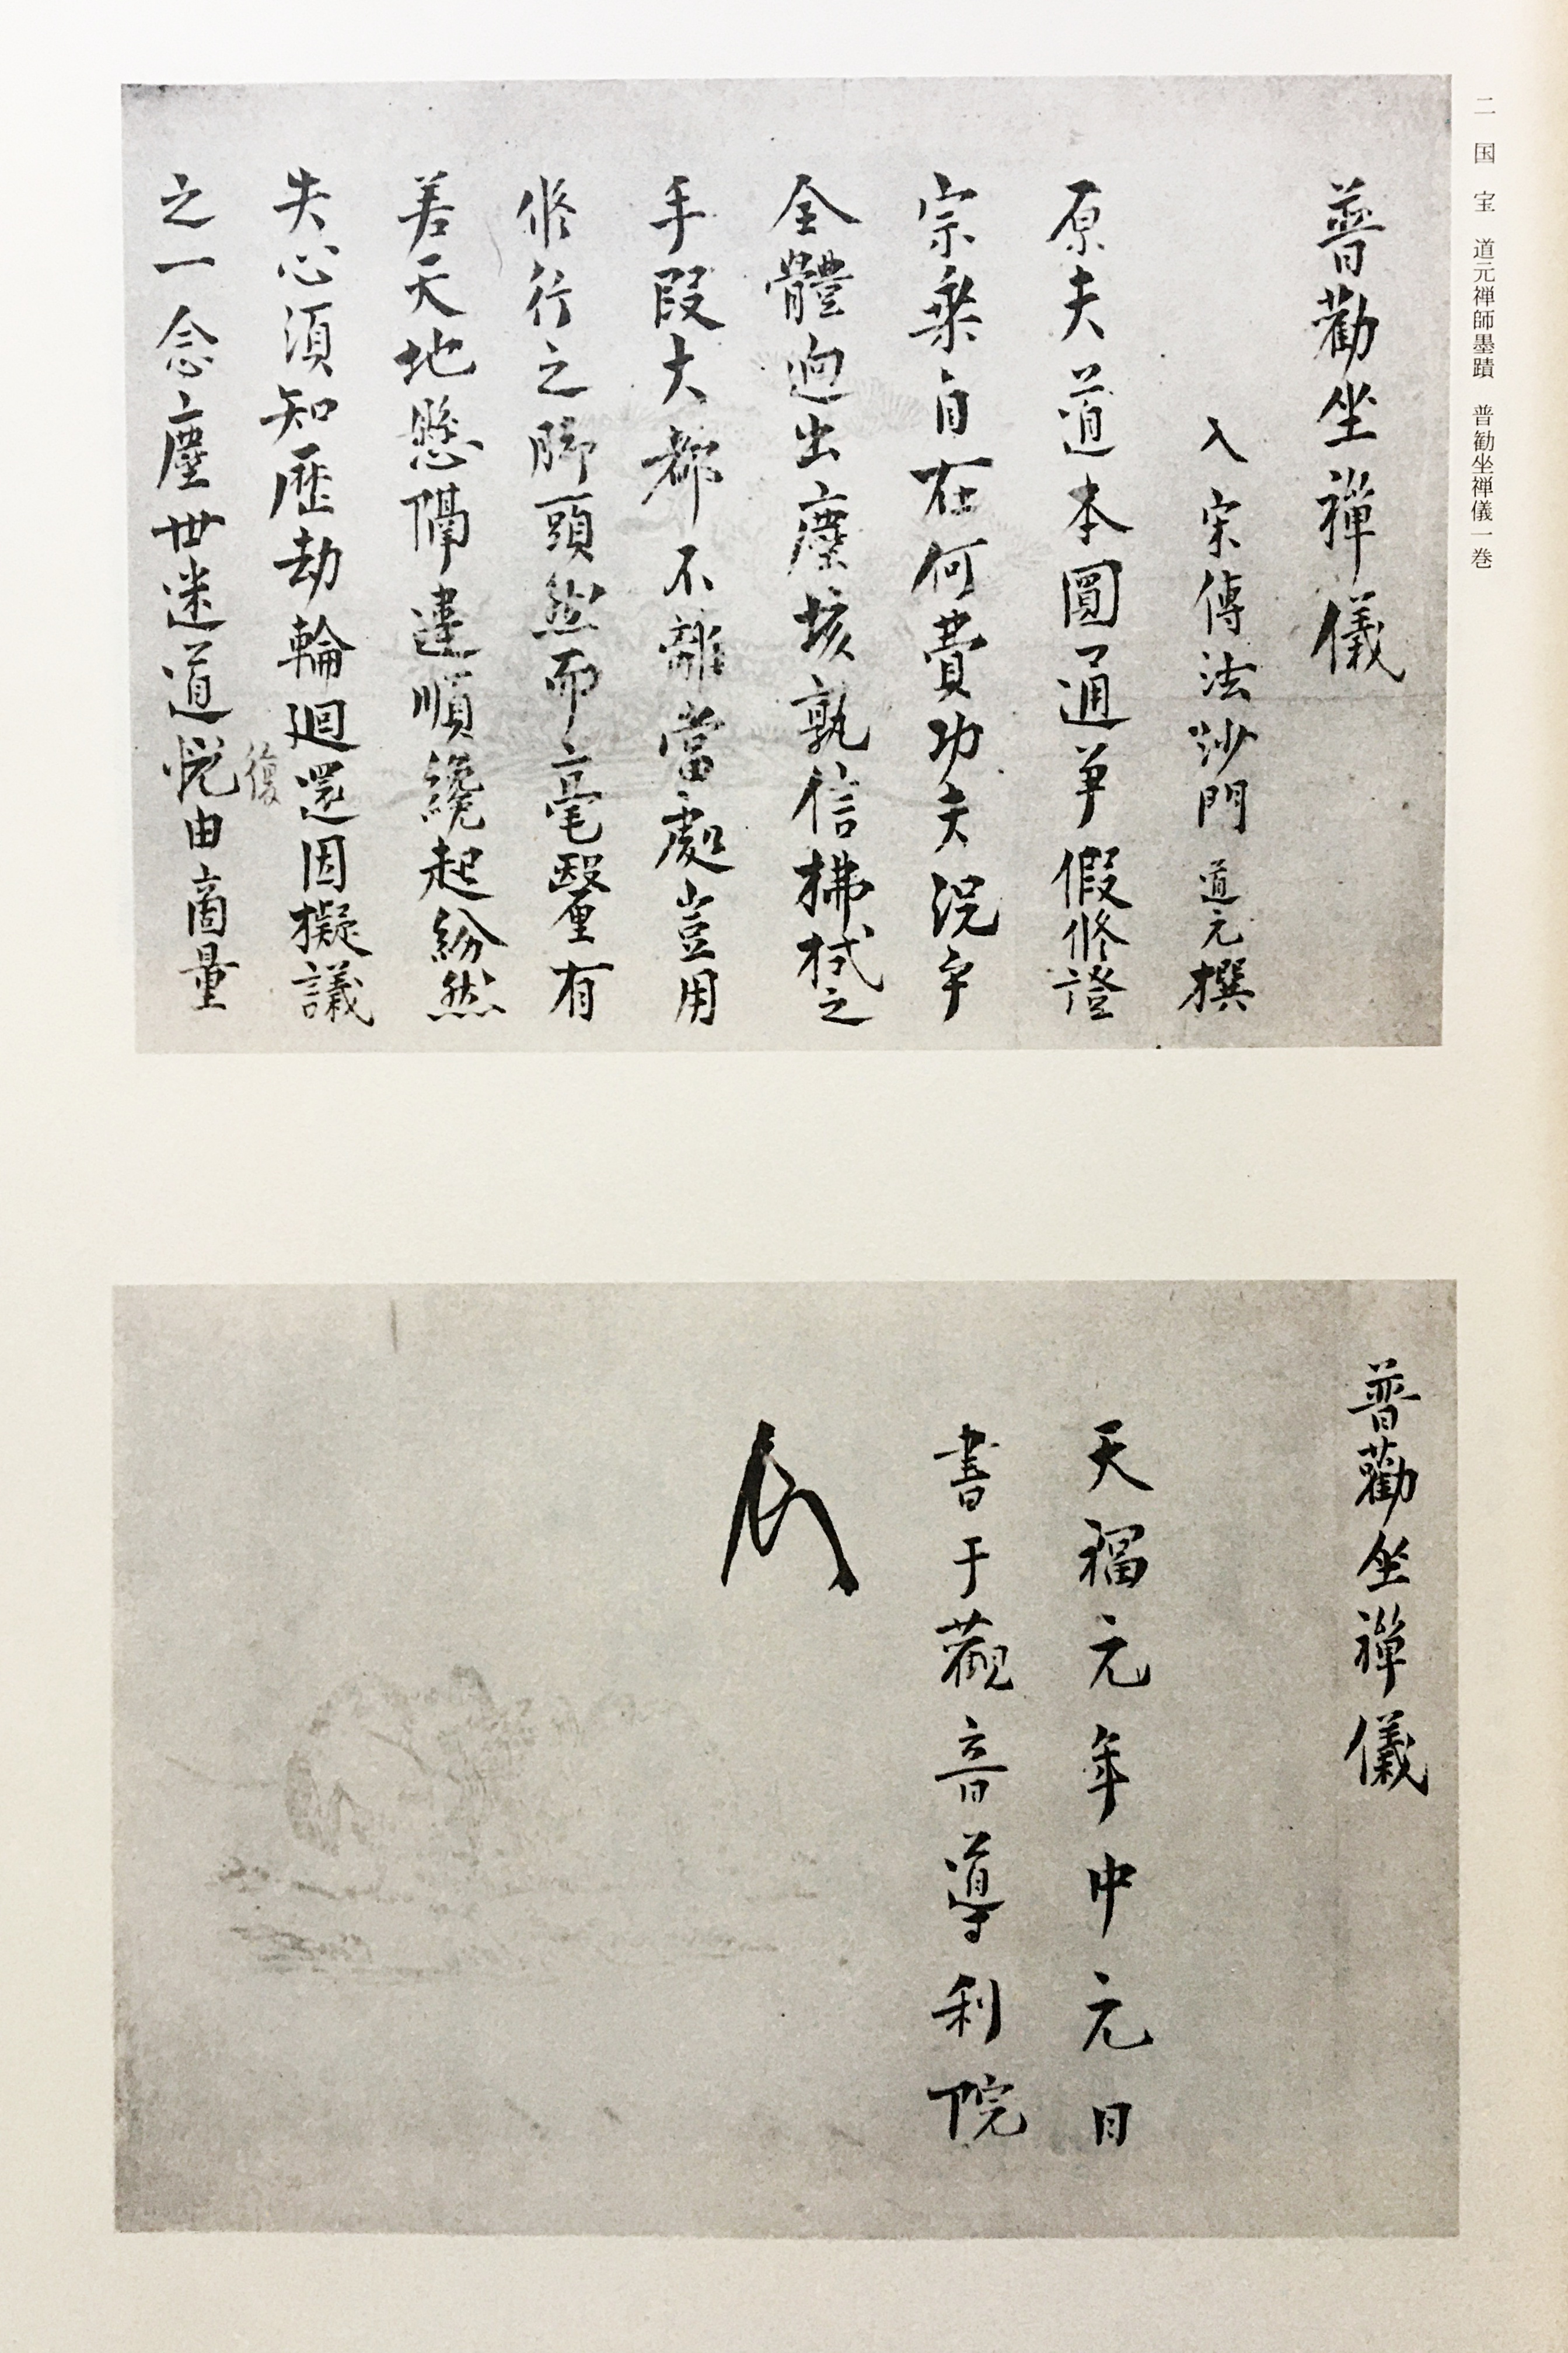 二　国　宝　道元禅師墨蹟　普勧坐禅儀一巻
普勸坐禪儀
入宋傳法沙門道元撰
原夫道本圓通爭假修證
宗乘自在何費功夫況乎
全體逈出塵埃孰信拂拭之
手段大都不離當處豈用
修行之脚頭然而毫氂有
差天地懸隔違順纔起紛然
失心須知歷劫輪廻還因擬議
之一念塵世迷道復由商量
普勸坐禪儀
天福元年中元日
書于觀音導利院